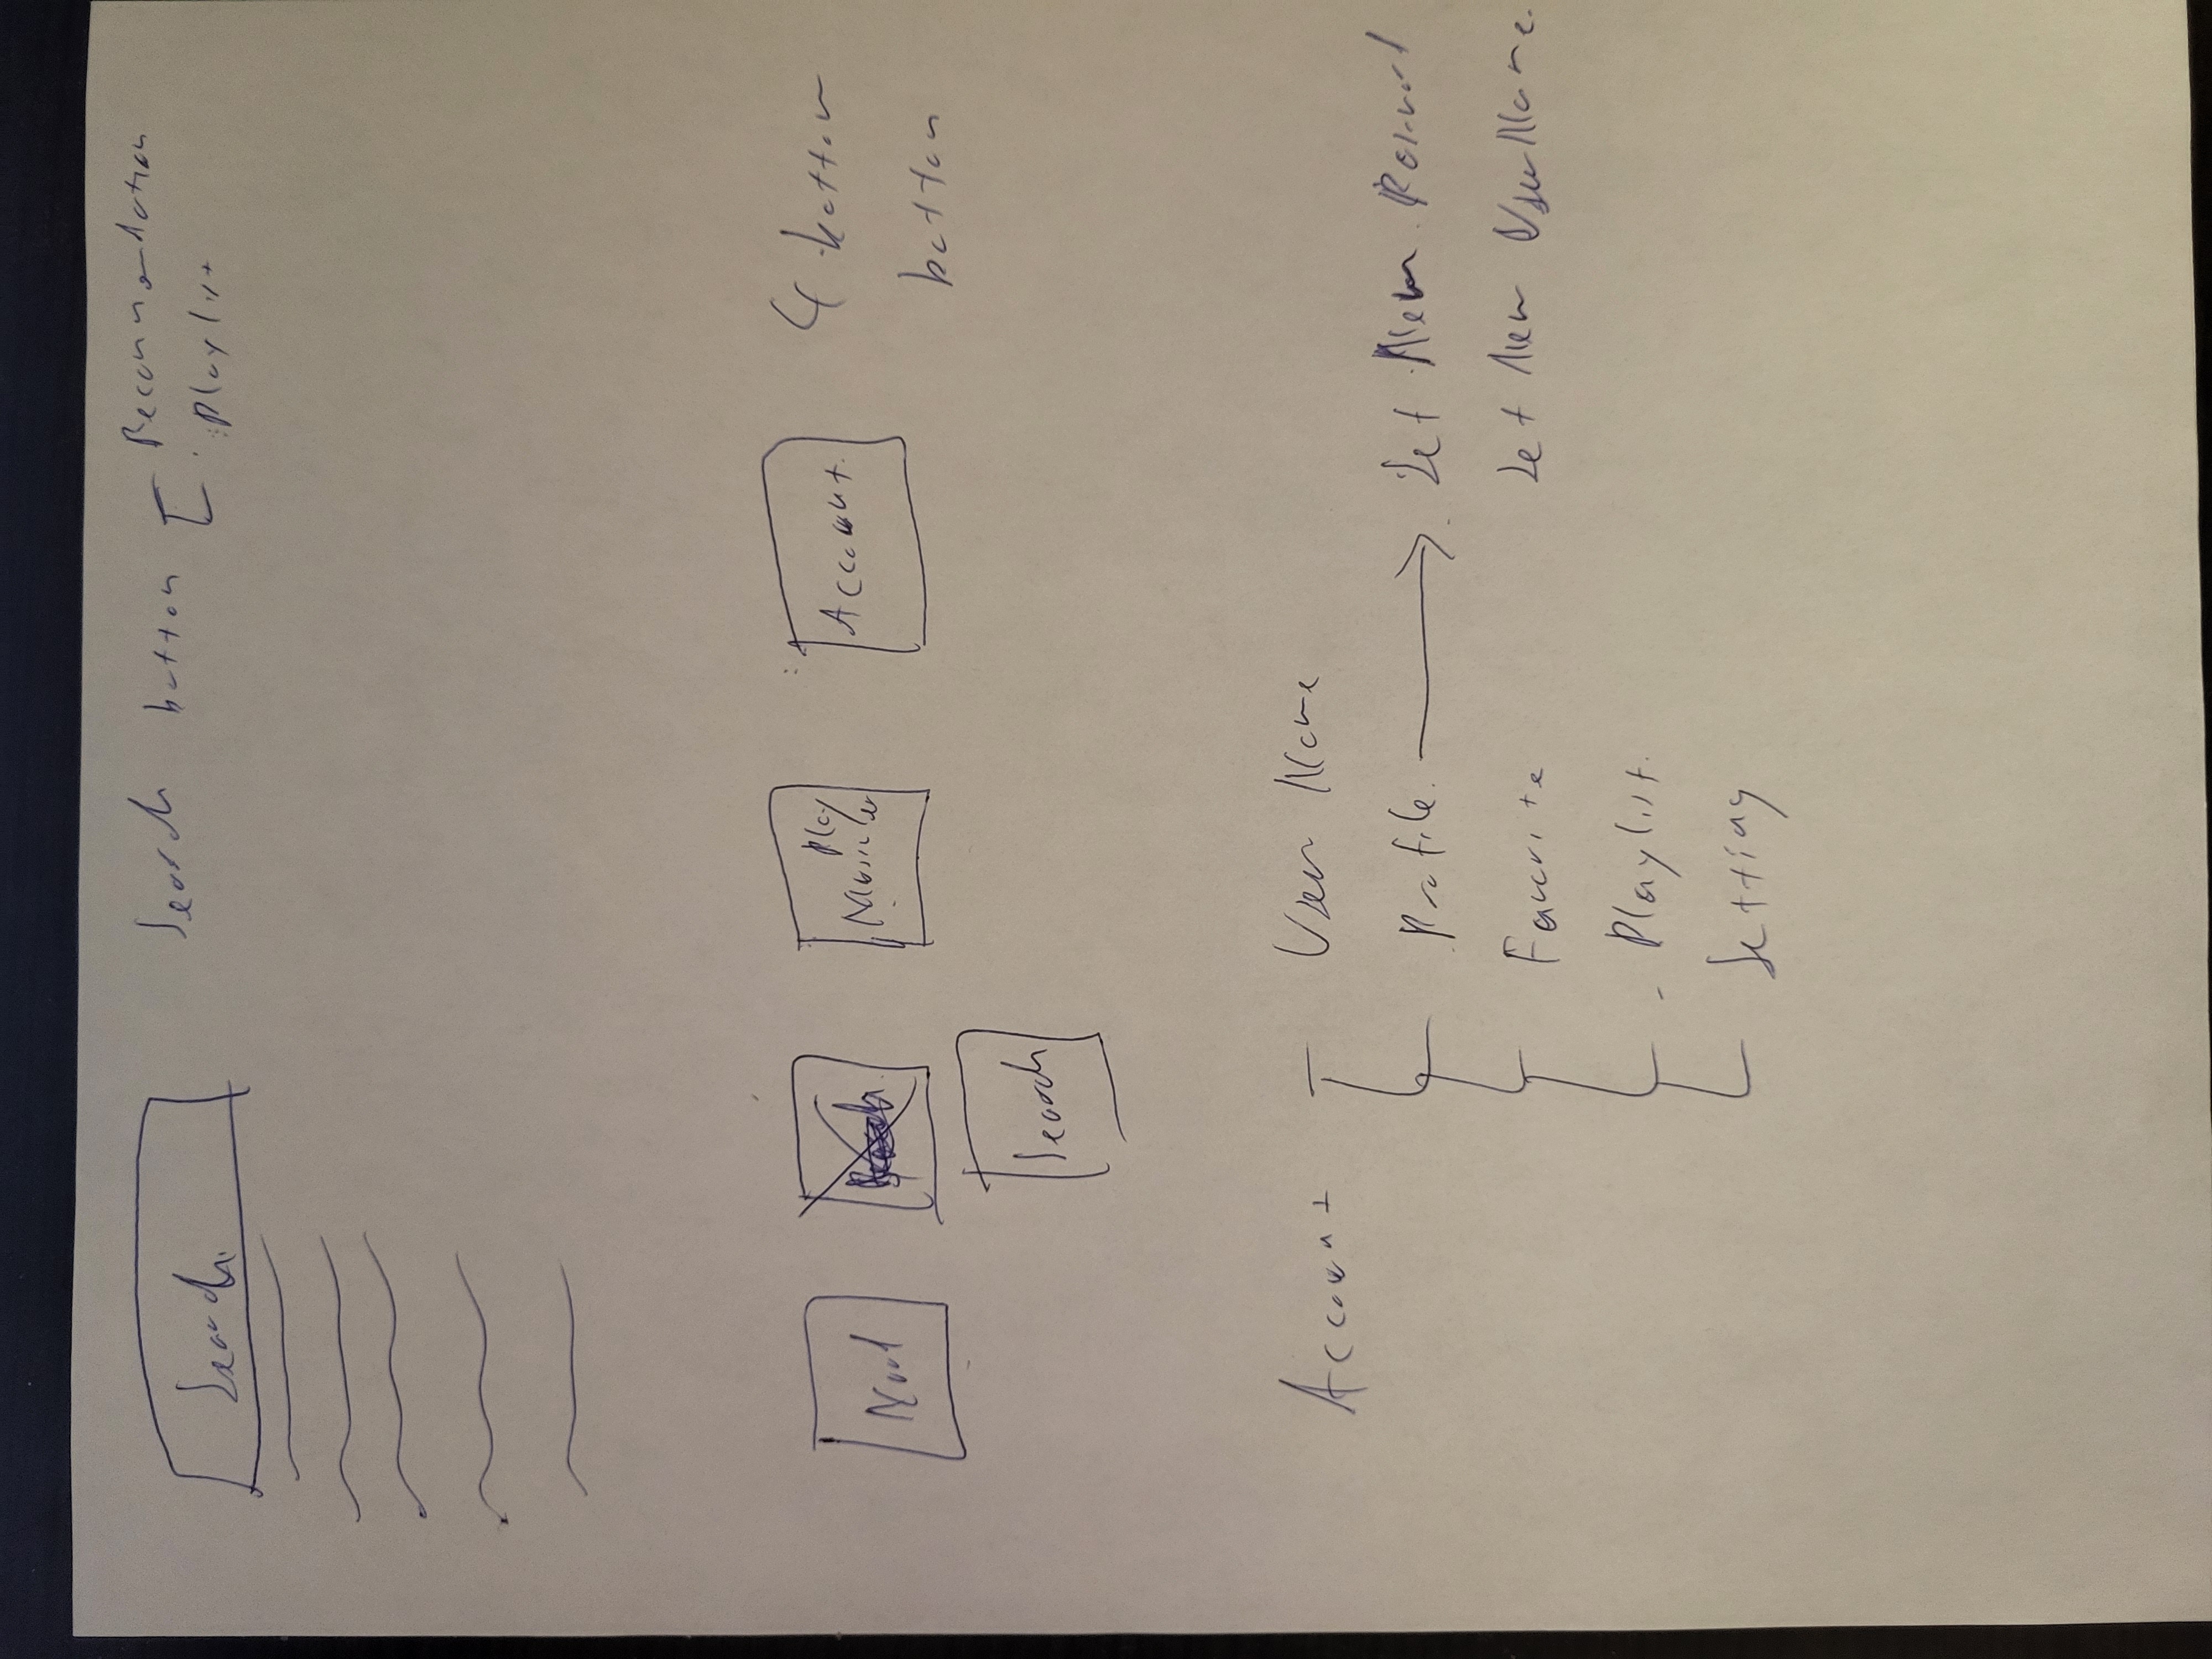 Search
Search button
Recommendation
Playlist
Play
Account
4 bottom
button
Search
Account
User Name
Profile
Set New
Set New UserName
Favorite
Playlist
Setting